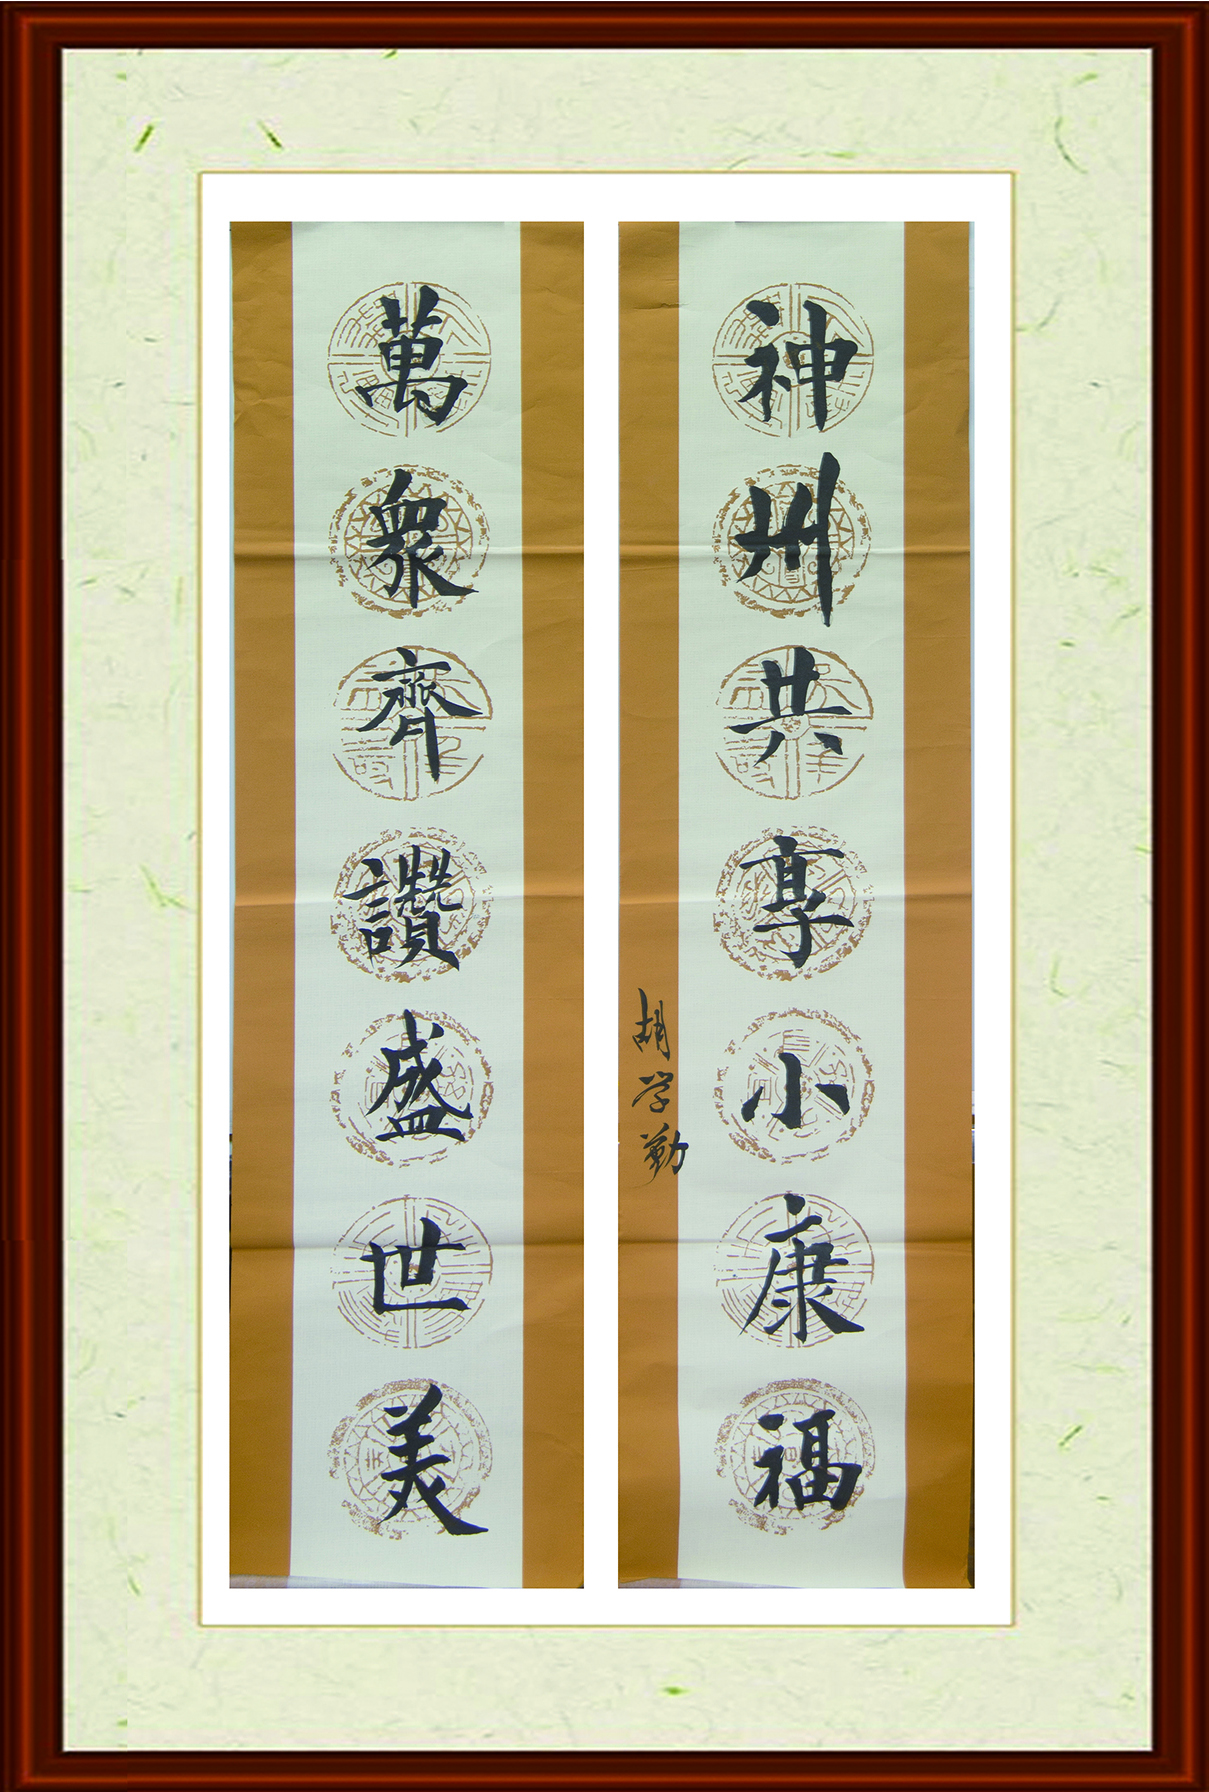 神州共享小康福
萬衆齊讚盛世美
胡学勤